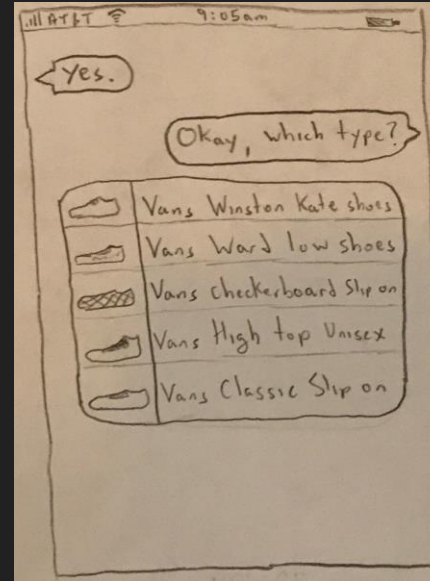 AT&T 9:05am
Yes.
Okay, which type?
Vans Winston Kate shoes
Vans Ward low shoes
Vans checkerboard Slip on
Vans High top Unisex
Vans Classic Slip on